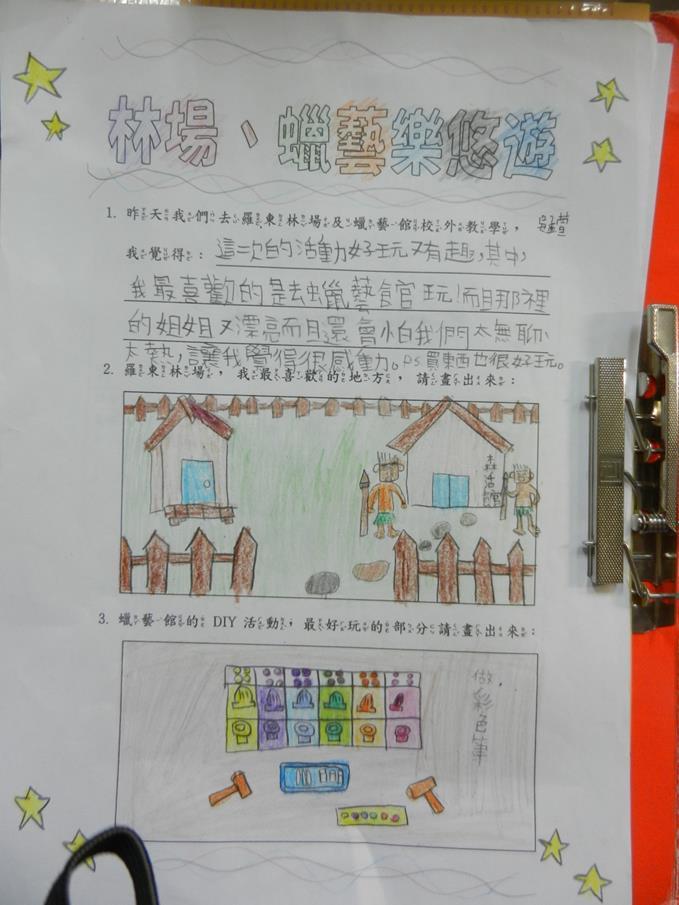 林場、蠟藝樂悠遊
1. 昨天我們去羅東林場及蠟藝館校外教學，
我覺得：這次的活動好玩又有趣，其中，
我最喜歡的是去蠟藝館玩！而且那裡
的姐姐又漂亮而且還會怕我們太無聊
太熱，讓我覺得很感動。PS買東西也很好玩。
2. 羅東林場，我最喜歡的地方，請畫出來：
森活館
3. 蠟藝館的 DIY 活動，最好玩的部分請畫出來：
做彩色筆